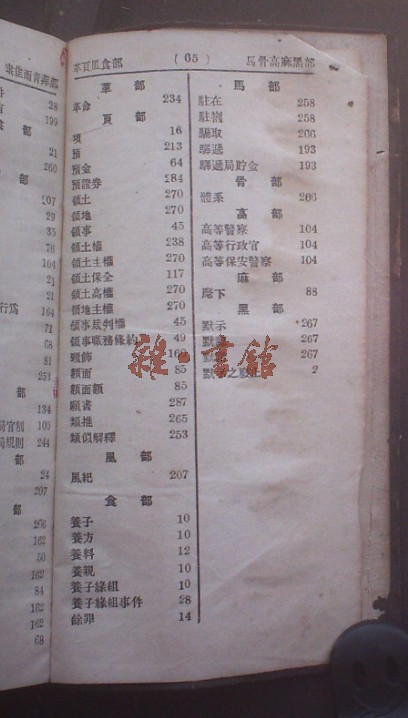 革頁風食部 ( 65 ) 馬骨高麻黑部
革部
革命 234
頁部
項 16
預 213
預金 64
預證券 284
領土 270
領地 270
領事 45
領土權 238
領土主權 270
領土保全 117
領土高權 270
領地主權 270
領事裁判權 45
領事職務條約 49
頸飾
額面 85
額面額 85
願書 287
類推 265
類似解釋 253
風部
風紀 207
食部
養子 10
養方 10
養料 12
養親 10
養子緣組 10
養子緣組事件 28
餘罪 14
馬部
駐在 258
駐劄 258
驅取 206
驛遞 193
驛遞局貯金 193
骨部
體系 206
高部
高等警察 104
高等行政官 104
高等保安警察 104
麻部
麾下 88
黑部
默示 267
默 267
267
默 之 2
雜·書館
28
199
21
260
部
107
29
35
76
104
21
21
行爲 104
71
68
81
253
部
134
官制 109
局規則 244
部
24
207
部
206
162
50
162
84
162
162
68